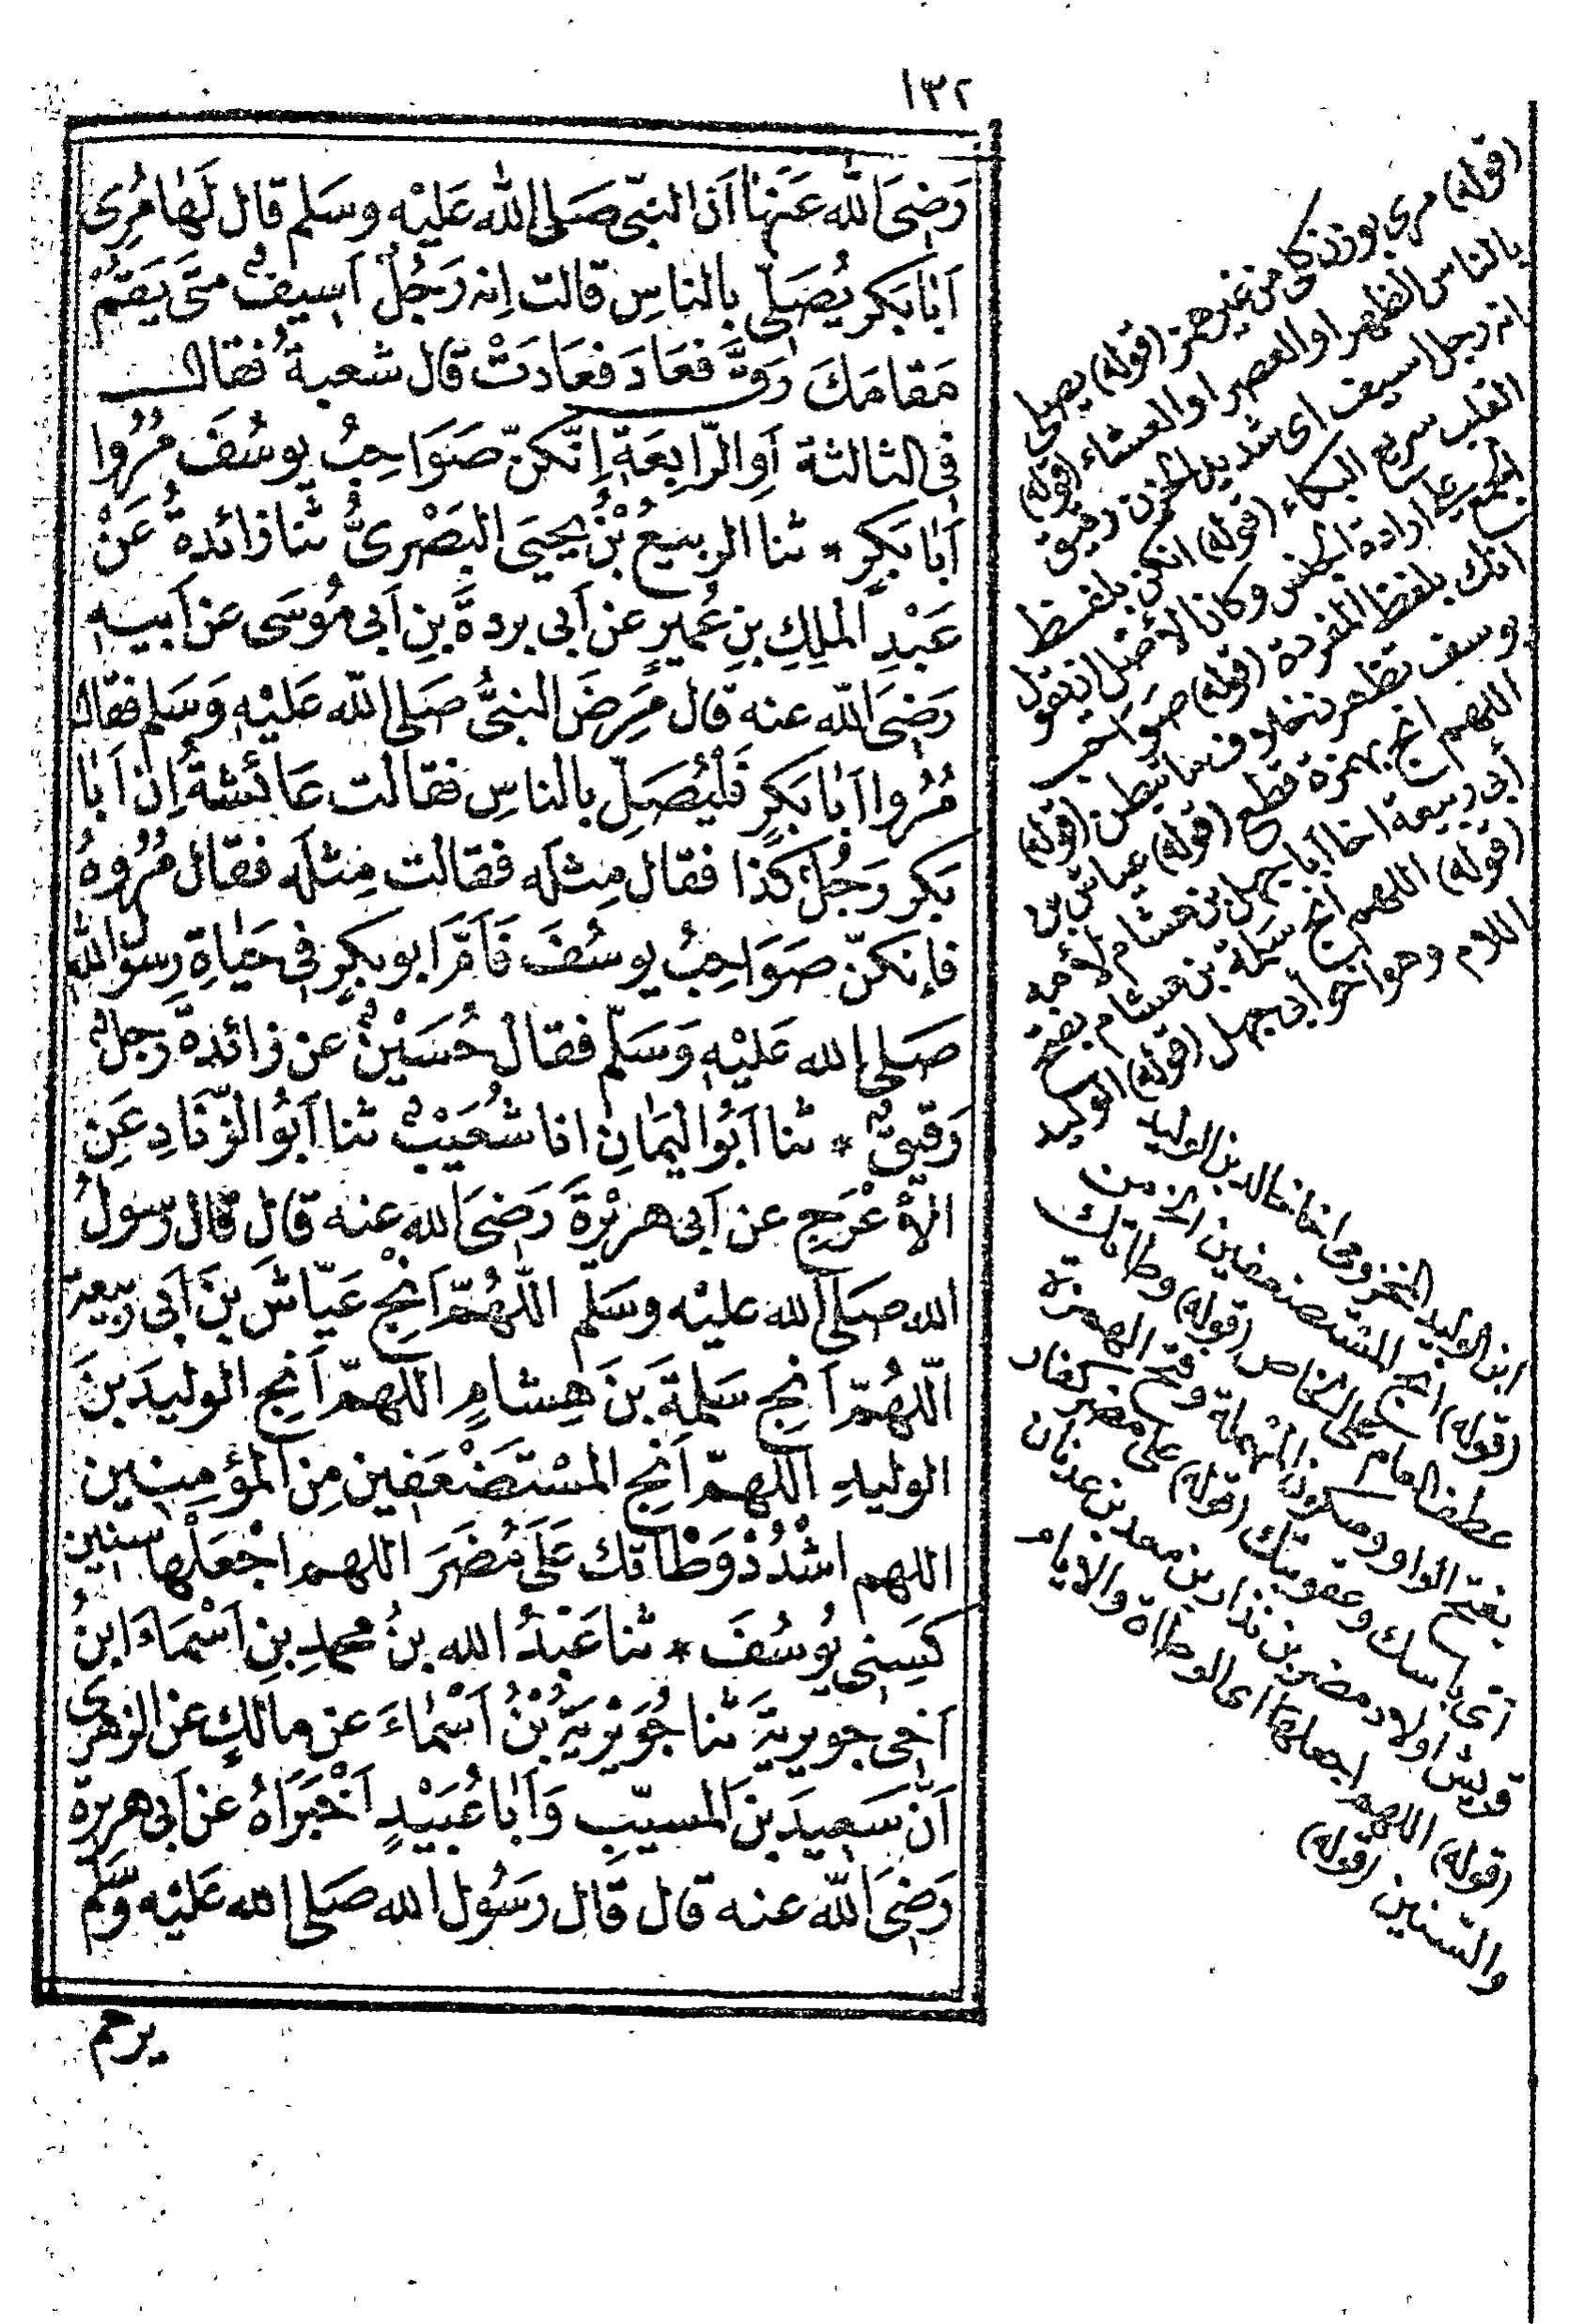 ١٣٢
رَضِىَ الله عَنْهَا اَنَّ النبّى صَلى الله عَلَيْه وسَلم قال لَهَا مُرِى
اَبَا بَكر يُصَلّى بالناسِ قالت اِنه رَجُلٌ اَسِيفٌ متَى يَقُمْ
مَقامَكَ رَقَّ فعَادَ فعَادَتْ قال شعبةُ فقال
فى الثالثة اَوِ الرّابِعَةِ اِنّكنّ صَوَاحِبُ يوسُفَ مُرُوا
اَبَا بَكرٍ * ثنا الربيعُ بْنُ يَحيَى البَصْرىُّ ثنا زائدةُ عَنْ
عَبْدِ الملِكِ بنِ عُميرٍ عن اَبى بردةَ بنِ اَبى مُوسَى عَن اَبيهِ
رَضِىَ الله عنه قال مَرِضَ النبىُّ صَلى الله عَلَيْهِ وَسَلم فقال
مُرُوا اَبَا بَكرٍ فَلْيُصَلِّ بالناسِ فقالت عَائشةُ اِنّ اَبَا
بَكر رَجُلٌ كذا فقال مِثلَه فقالت مِثلَه فقال مُرُوهُ
فاِنكنّ صَوَاحِبُ يوسُفَ فَاَمَّ ابو بكرٍ فى حَيَاةِ رسول الله
صَلى الله عَليْهِ وَسَلّم فقال حُسَيْنٌ عن زائدةَ رَجلٌ
رَقيقٌ * ثنا اَبُو اليَمَانِ انا شُعَيْبٌ ثنا اَبُو الزّنَادِ عَنِ
الاَعْرَجِ عن اَبى هريْرَةَ رَضِىَ الله عنه قال قال رسولُ
الله صَلى الله عليْه وسَلّم اللّهُمّ اَنْجِ عَيّاشَ بْنَ اَبى رَبيعةَ
اَللّهُمّ اَنجِ سَلمةَ بنَ هِشامٍ اللّهمّ اَنجِ الوليدَ بنَ
الوليدِ اللّهمّ اَنجِ المسْتَضْعَفِين مِن المؤمِنِين
اللهم اشْدُدْ وَطْاَتك عَلَى مُضَرَ اللهم اجْعَلْها سنين
كَسِنِى يُوسُفَ * ثنا عَبْدُ الله بنُ محمدِ بنِ اَسْمَاءَ ابنُ
اَخِى جويريةَ ثنا جُوَيْرِيَةُ بْنُ اَسْمَاءَ عن مالكٍ عن الزهرى
اَنّ سَعِيدَ بنَ المسيّبِ وَاَبَا عُبَيْدٍ اَخْبَرَاهُ عن اَبى هريرة
رَضِىَ الله عنه قال قال رَسُول الله صَلى الله عَليْه وَسَلّم
يرحم
(قوله) مرى بوزن كلى من غير همز (قوله) يصلى
بالناس الظهر او العصر او العشاء (قوله)
انه رجل اسيف اى شديد الحزن رقيق
القلب سريع البكاء (قوله) انكن بلفظ
الجمع على ارادة الجنس وكان الاصل ان تقول
انك بلفظ المفردة (قوله) صواحب
يوسف تظهرن خلاف ما تبطن (قوله)
اللهم انج بهمزة قطع (قوله) عياش بن
أبى ربيعة اخا أبا جهل بن هشام لأمه
(قوله) اللهم انج سلمة بن هشام بفتح
اللام وهو اخو أبى جهل (قوله) الوليد
ابن الوليد المخزومى اخا خالد بن الوليد
(قوله) انج المستضعفين الخ من
عطف العام على الخاص (قوله) وطاتك
بفتح الواو وسكون المهملة وفتح الهمزة
اى باسك وعقوبتك (قوله) على مضر كفار
قريش اولاد مضر بن نزار بن معد بن عدنان
(قوله) اللهم اجعلها اى الوطاة والايام
والسنين (قوله)